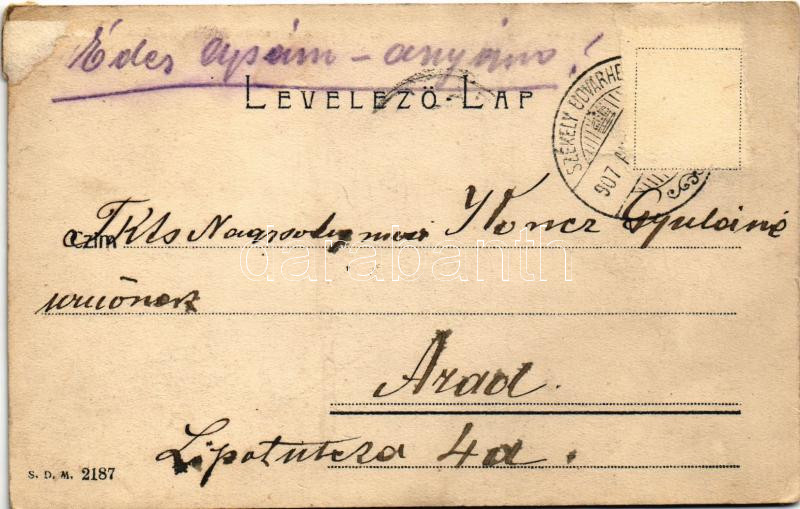 Édes apám – anyám!
LEVELEZŐ-LAP
SZÉKELY UDVARHE
907
Czím Tkts Nagysolymosi Koncz Gyuláné
urnőnek
Arad.
Lipót utcza 4a.
S. D. M. 2187
darabanth